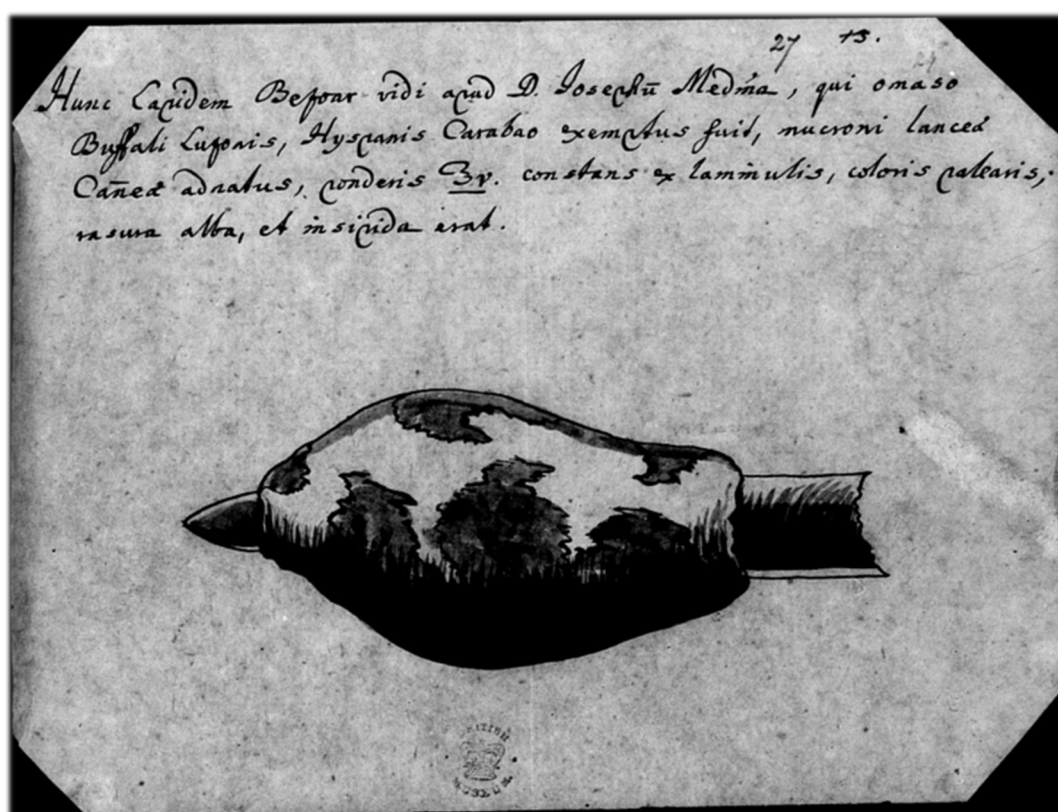 27 13.
Hunc Lapidem Bezoar vidi apud D. Iosephū Medīna, qui omaso
Buffali Luzonis, Hyspanis Carabao exemptus fuit, mucroni lanceæ
Cañeæ adnatus, ponderis ℥v. constans ex laminulis, coloris palearis,
rasura alba, et insipida erat.
BRITISH
MUSEUM